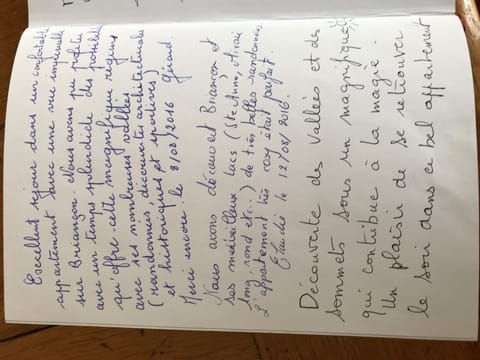 Excellent séjour dans un confortable
appartement avec une vue imprenable
sur Briançon. Nous avons pu profiter
avec un temps splendide des possibilités
qu'offre cette magnifique région
avec ses nombreuses vallées
(randonnées, découvertes architecturales
et historiques et sportives)
Merci encore. le 8/08/2016 Gérard.
Nous avons découvert Briançon et
ses merveilleux lacs (Ste Anne, Miroir
long, rond etc...) de très belles randonnées.
L'appartement très cosy était parfait.
Elaudie le 12/08/2016.
Découverte des Vallées et des
sommets sous un magnifique
qui contribue à la magie.
Un plaisir de se retrouver
le soir dans ce bel appartement